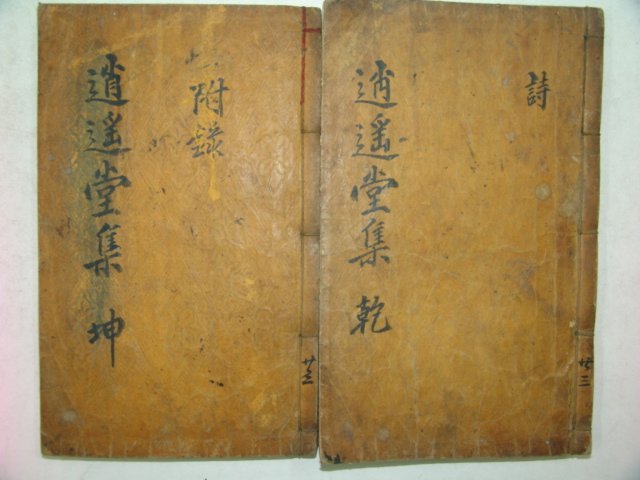 詩
逍遙堂集 乾
共三
附錄
逍遙堂集 坤
共三